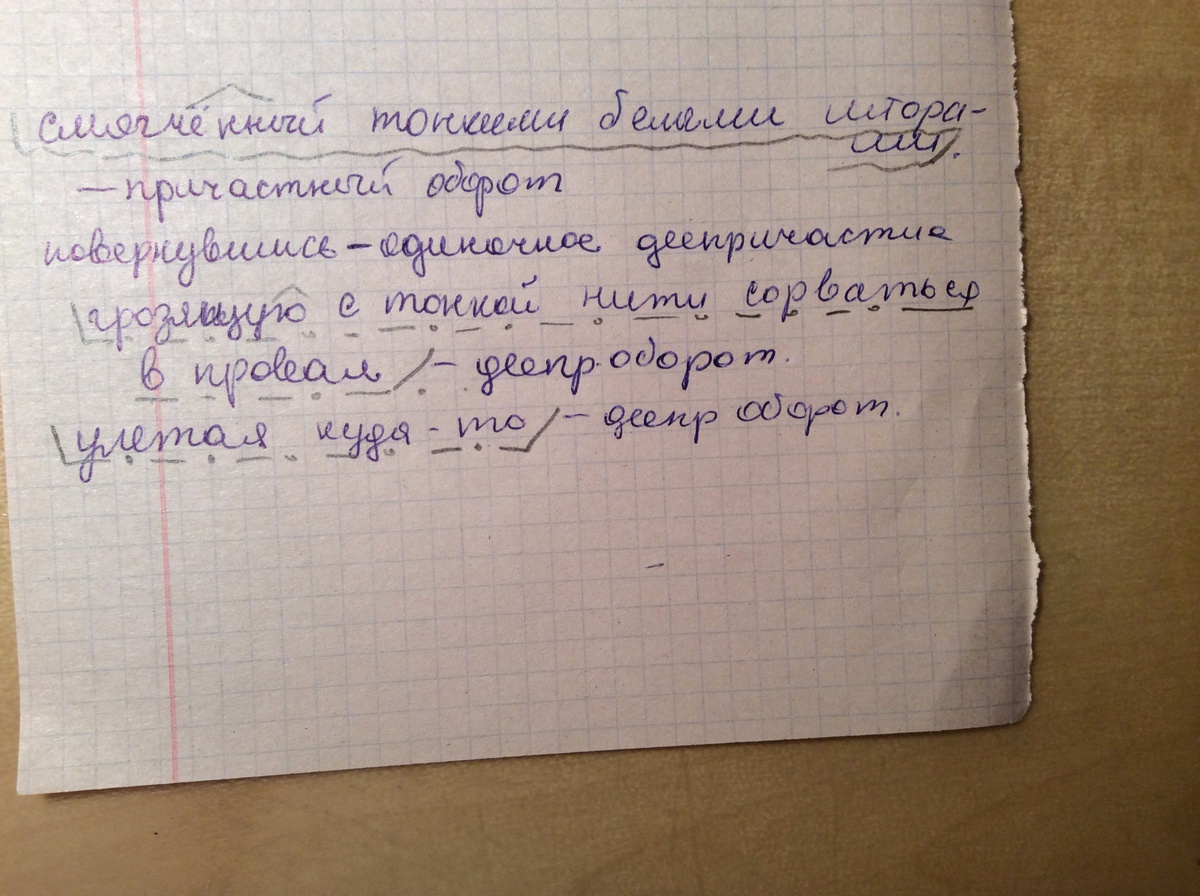 смягчённый тонкими белыми штора-
ми.
— причастный оборот
повернувшись – одиночное деепричастие
грозящую с тонкой нити сорваться
в провал – деепр. оборот.
улетая куда-то – деепр оборот.